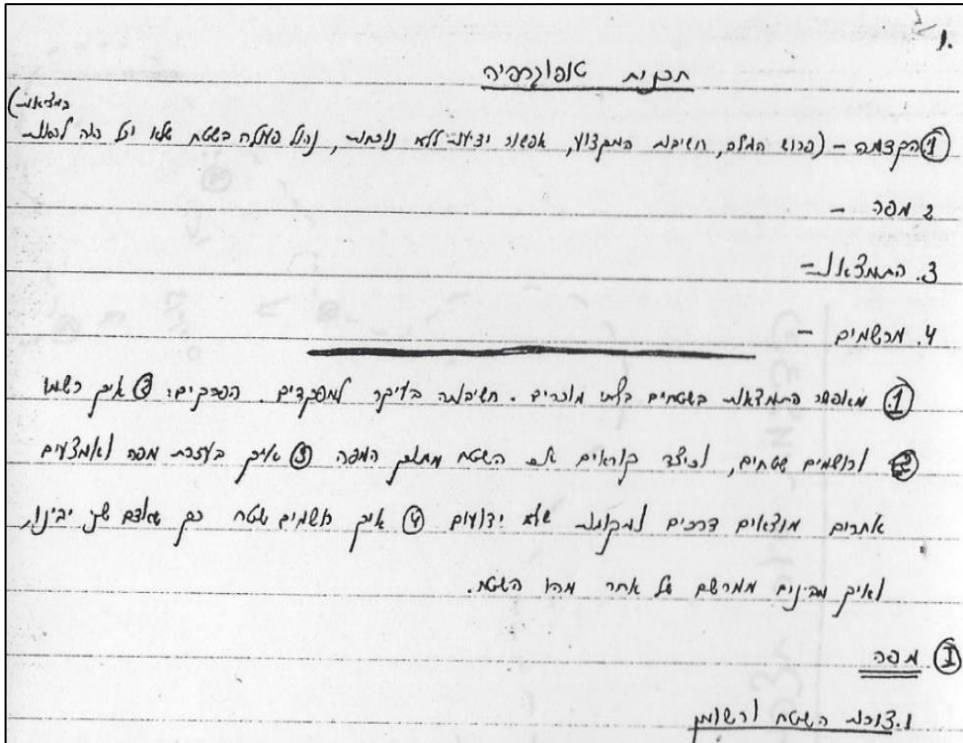 1.
תכנית טופוגרפיה
במציאות)
① הקדמה – (פרוש המלה, חשיבות המקצוע, אפשור ידיעות ללא נוכחות, נהול פעולה בשטח שלא יכל היה לראות
2 מפה –
3. התמצאות –
4. מרשמים –
① מאפשר התמצאות בשטחים בלתי מוכרים. חשיבותה בעיקר למפקדים. הפרקים: ② איך רשמו
ורושמים שטחים, וכיצד קוראים את השטח מתוך המפה ③ איך בעזרת מפה ואמצעים
אחרים מוצאים דרכים למקומות שלא ידועים ④ איך רושמים שטח כך שאדם שני יבינו,
ואיך מבינים ממרשם של אחר מהו השטח.
Ⓘ מפה
1. צורת השטח ורשומן